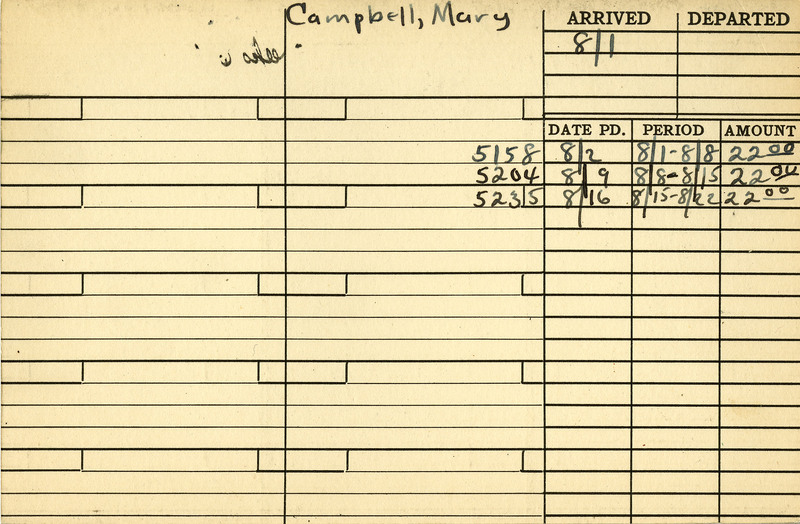 Campbell, Mary
ARRIVED DEPARTED
8/1
DATE PD. PERIOD AMOUNT
5158 8/2 8/1-8/8 22 00
5204 8/9 8/8-8/15 22 00
5235 8/16 8/15-8/22 22 00